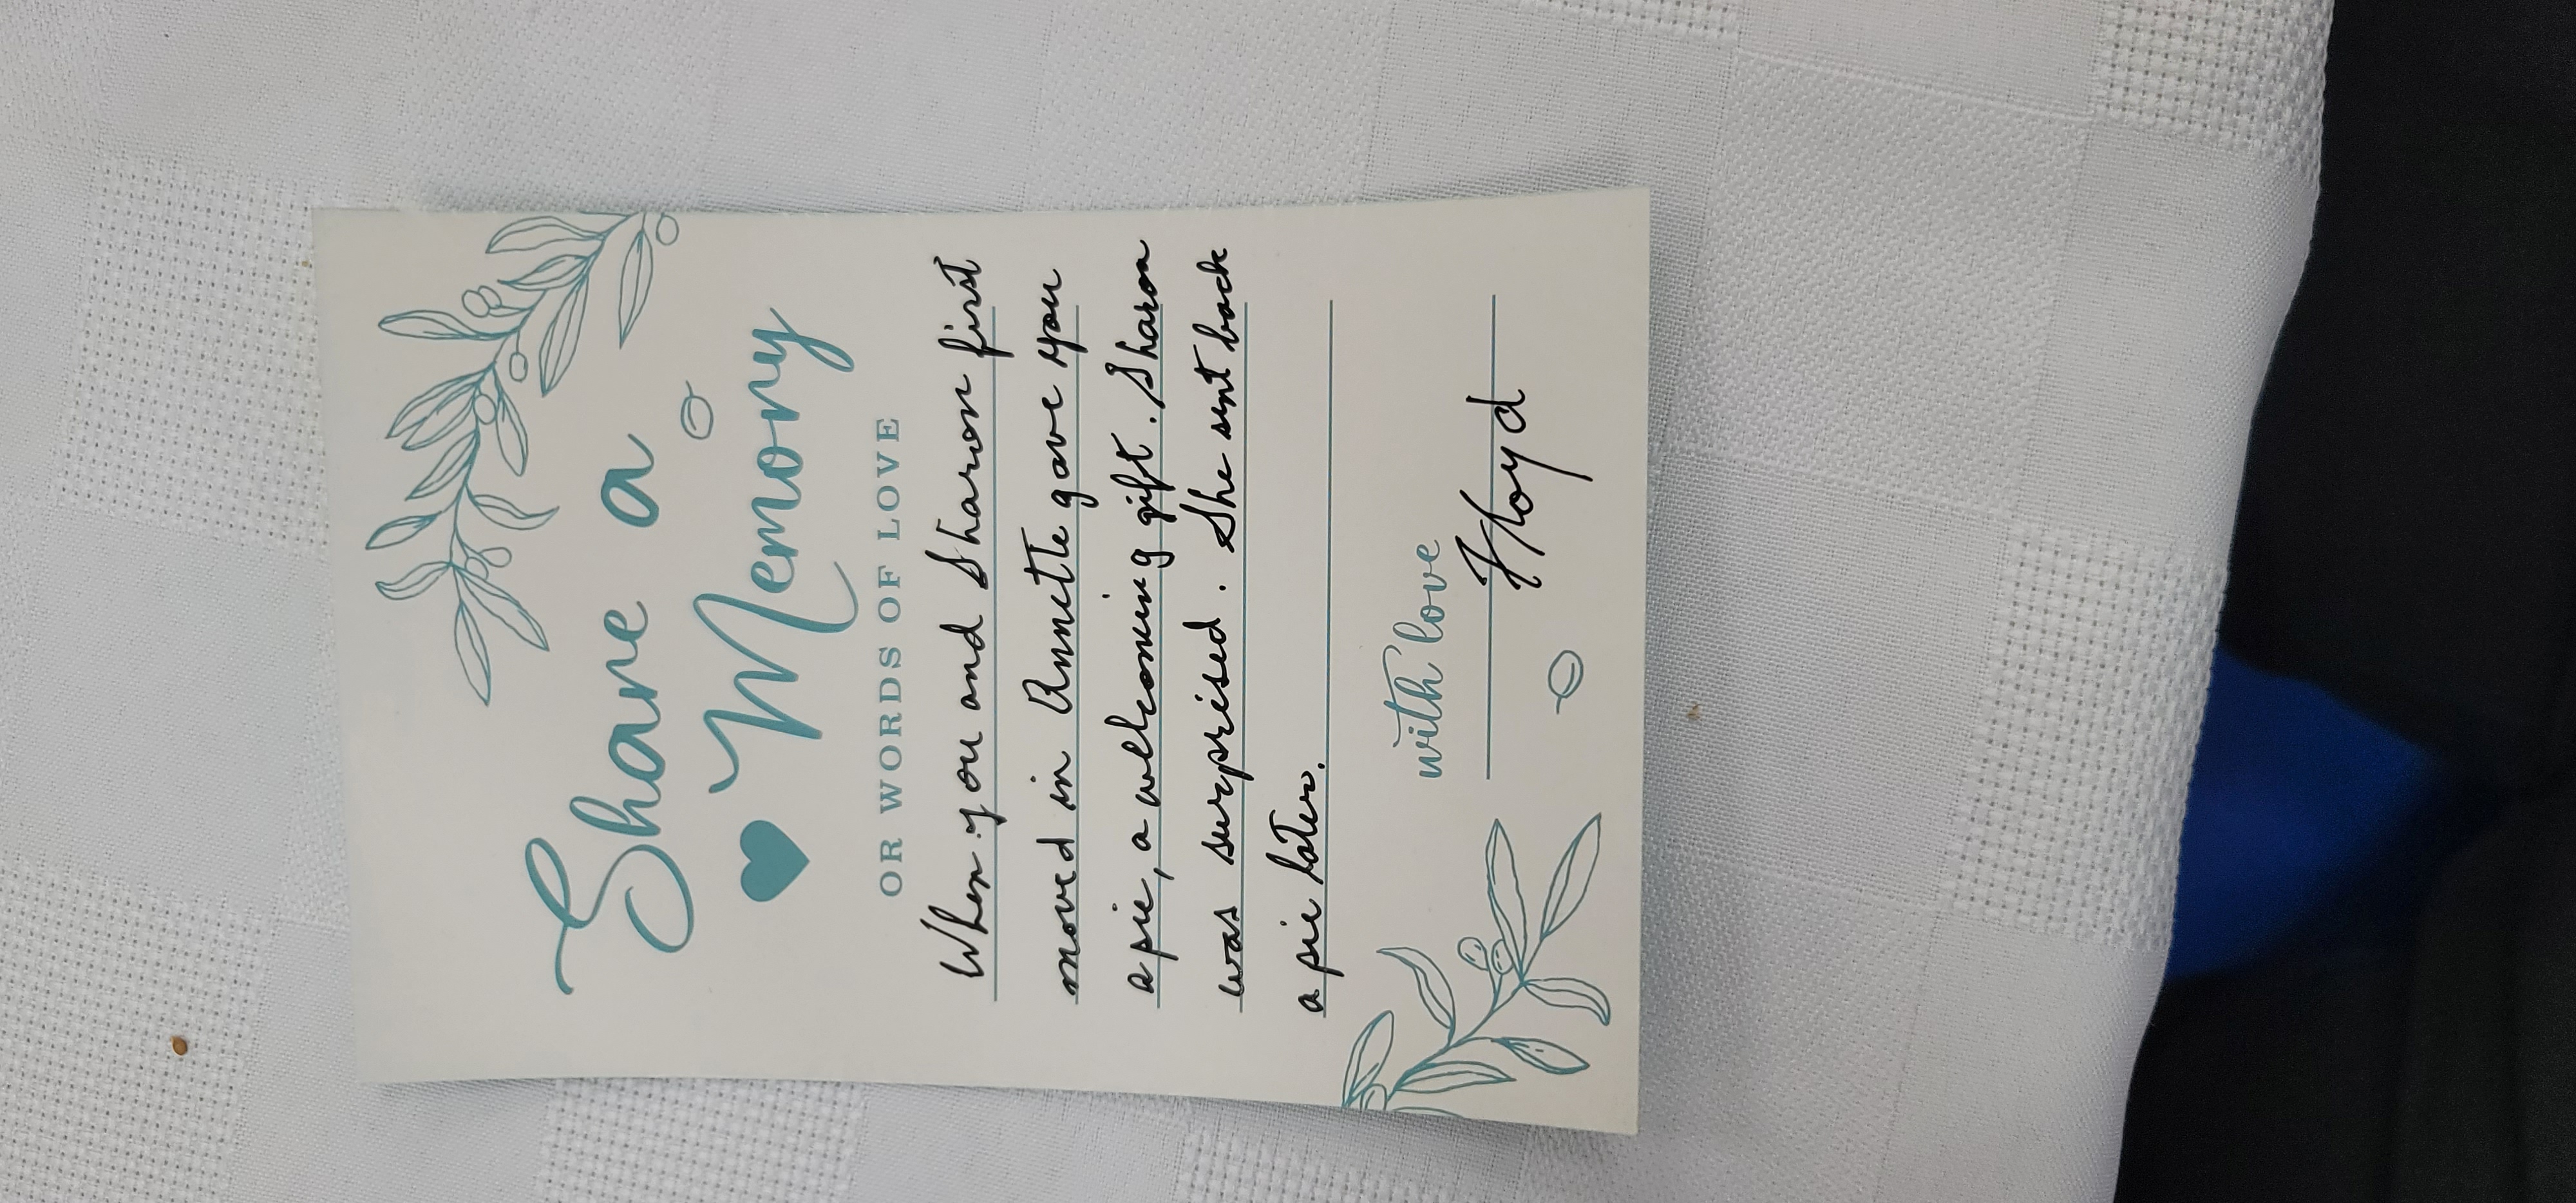 Share a
Memory
OR WORDS OF LOVE
When you and Sharon first
moved in Annette gave you
a pie, a welcoming gift. Sharon
was surprised. She sent back
a pie later.
with love
Floyd